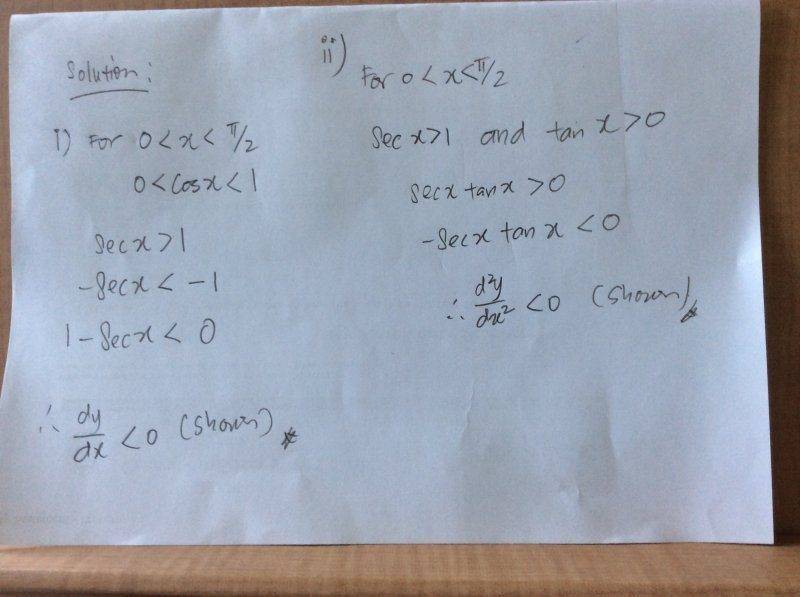 Solution:
i) For 0 < x < π/2
0 < cos x < 1
sec x > 1
-sec x < -1
1 - sec x < 0
∴ dy/dx < 0 (shown)
ii)
For 0 < x < π/2
sec x > 1 and tan x > 0
sec x tan x > 0
-sec x tan x < 0
∴ d²y/dx² < 0 (shown)